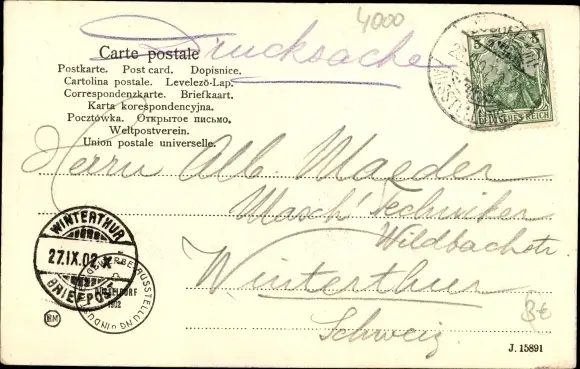 4000
Carte postale
Drucksache
Postkarte. Post card. Dopisnice.
Cartolina postale. Levelező-Lap.
Correspondenzkarte. Briefkaart.
Karta korespondencyjna.
Pocztówka. Открытое письмо.
Weltpostverein.
Union postale universelle.
5 5
DEUTSCHES REICH
Herrn Alb. Maeder
Masch' Techniker
Wildbachstr
Winterthur
Schweiz
WINTERTHUR
27.IX.02.X
BRIEFPOST
DÜSSELDORF
1902
3€
J. 15891